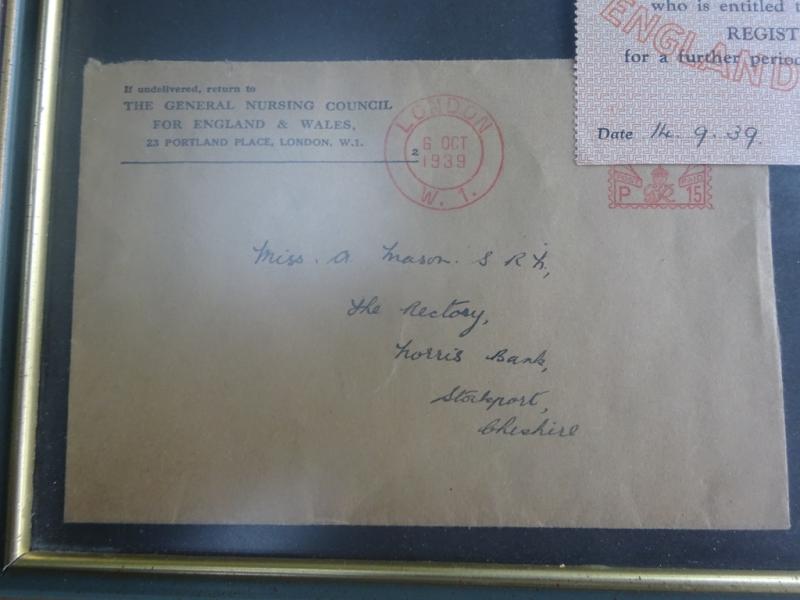 who is entitled t
REGIST
for a further period
ENGLAND
Date 14. 9. 39.
If undelivered, return to
THE GENERAL NURSING COUNCIL
FOR ENGLAND & WALES,
23 PORTLAND PLACE, LONDON, W.1.
2
LONDON
6 OCT
1939
W. 1.
P GR 15
Miss. A Mason. S R N,
The Rectory,
Norris Bank,
Stockport,
Cheshire